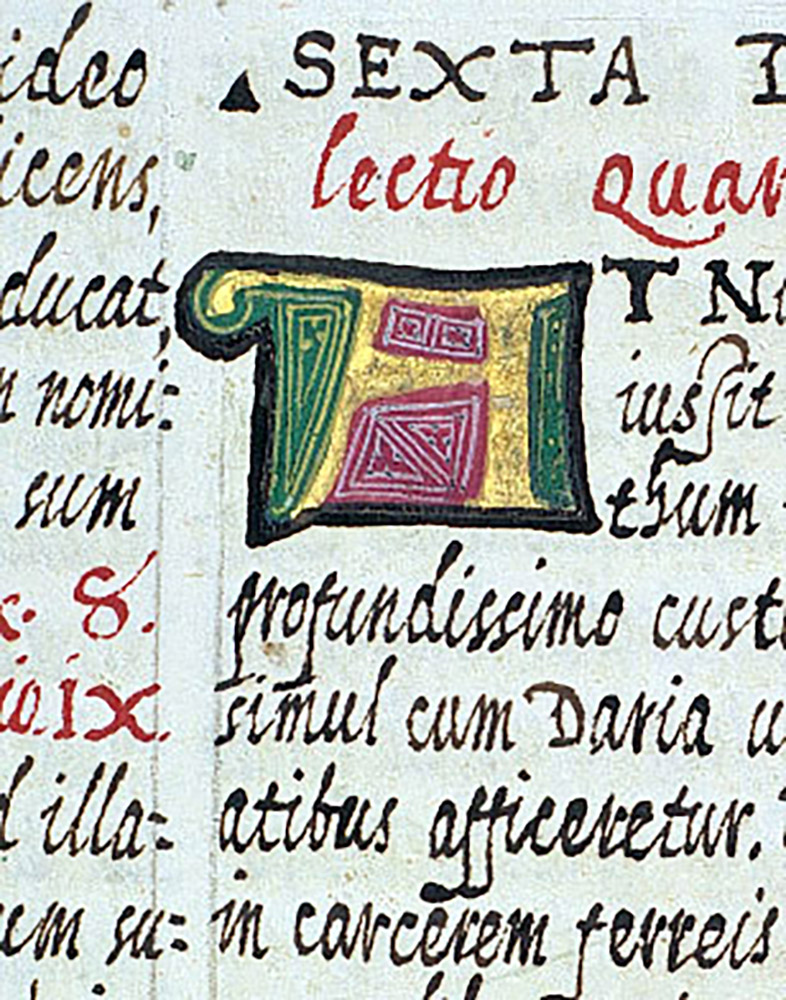 ideo
icens,
ducat,
n nomi:
sum
x. 8.
io. IX.
d illa:
um su:
SEXTA D
lectio quar
AT No
iussit
thum
profundissimo custo
simul cum Daria u
atibus afficeretur.
in carcerem ferreis